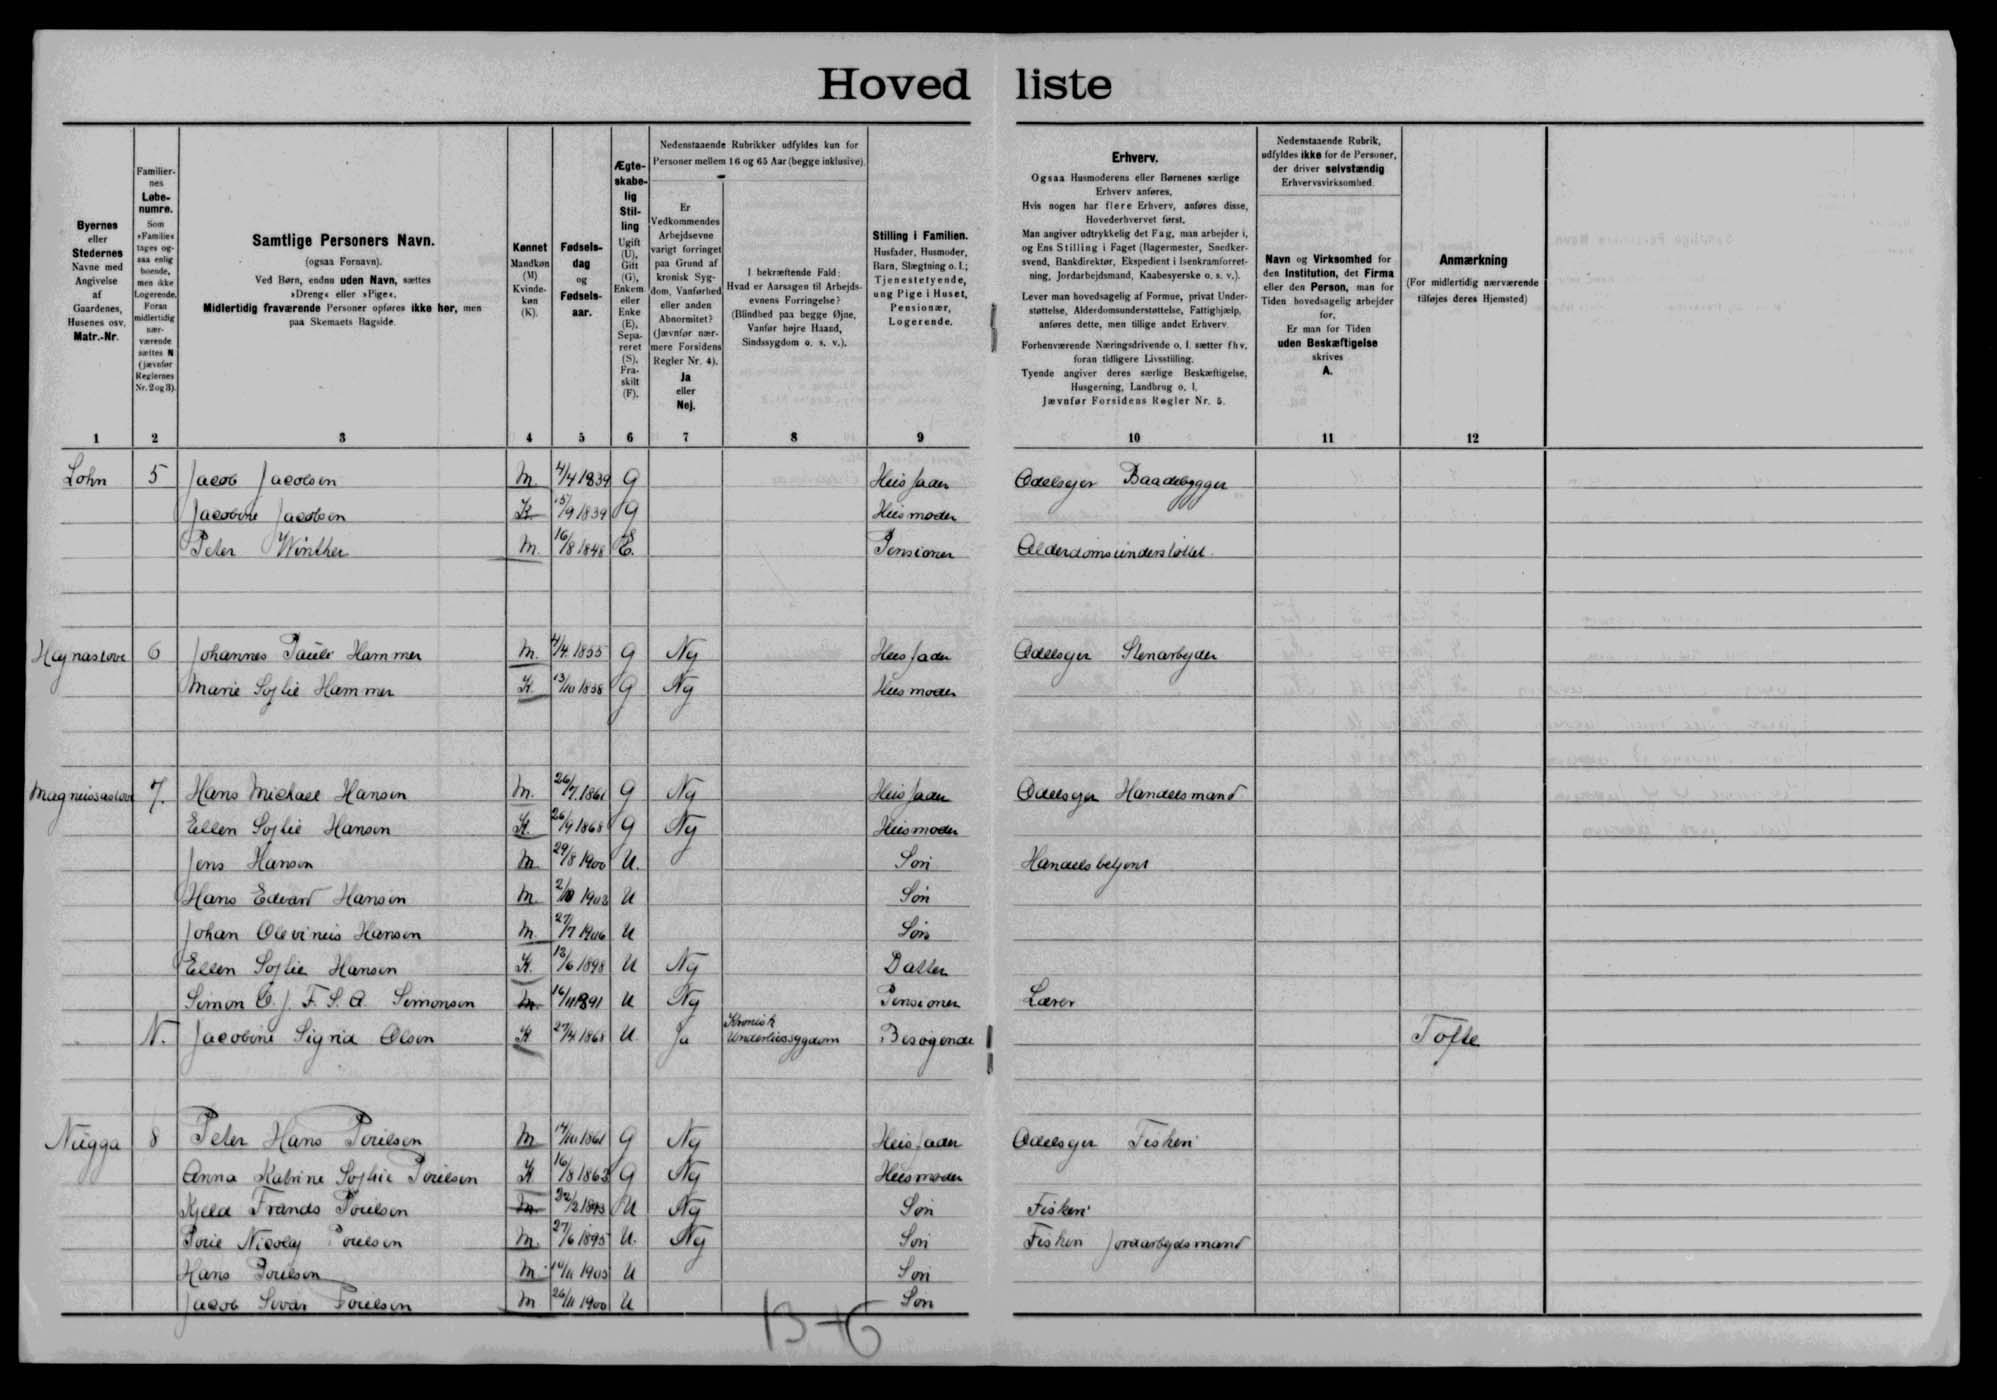 Hovedliste
Byernes
eller
Stedernes
Navne med
Angivelse
af
Gaardenes,
Husenes osv.
Matr.-Nr.
Familier-
nes
Løbe-
numre.
Som
»Familie«
tages og-
saa enlig
boende,
men ikke
Logerende.
Foran
midlertidig
nær-
værende
sættes N
(jævnfør
Reglernes
Nr. 2 og 3).
Samtlige Personers Navn.
(ogsaa Fornavn).
Ved Børn, endnu uden Navn, sættes
»Dreng« eller »Pige«.
Midlertidig fraværende Personer opføres ikke her, men
paa Skemaets Bagside.
Kønnet
Mandkøn
(M)
Kvinde-
køn
(K).
Fødsels-
dag
og
Fødsels-
aar.
Ægte-
skabe-
lig
Stil-
ling
Ugift
(U),
Gift
(G),
Enkem.
eller
Enke
(E),
Sepa-
reret
(S),
Fra-
skilt
(F).
Nedenstaaende Rubrikker udfyldes kun for
Personer mellem 16 og 65 Aar (begge inklusive).
Er
Vedkommendes
Arbejdsevne
varigt forringet
paa Grund af
kronisk Syg-
dom, Vanførhed
eller anden
Abnormitet?
(Jævnfør nær-
mere Forsidens
Regler Nr. 4).
Ja
eller
Nej.
I bekræftende Fald:
Hvad er Aarsagen til Arbejds-
evnens Forringelse?
(Blindhed paa begge Øjne,
Vanfør højre Haand,
Sindssygdom o. s. v.).
Stilling i Familien.
Husfader, Husmoder,
Barn, Slægtning o. l.;
Tjenestetyende,
ung Pige i Huset,
Pensionær,
Logerende.
Erhverv.
Ogsaa Husmoderens eller Børnenes særlige
Erhverv anføres.
Hvis nogen har flere Erhverv, anføres disse,
Hovederhvervet først.
Man angiver udtrykkelig det Fag, man arbejder i,
og Ens Stilling i Faget (Bagermester, Snedker-
svend, Bankdirektør, Ekspedient i Isenkramforret-
ning, Jordarbejdsmand, Kaabesyerske o. s. v.).
Lever man hovedsagelig af Formue, privat Under-
støttelse, Alderdomsunderstøttelse, Fattighjælp,
anføres dette, men tillige andet Erhverv.
Forhenværende Næringsdrivende o. l. sætter fhv.
foran tidligere Livsstilling.
Tyende angiver deres særlige Beskæftigelse,
Husgerning, Landbrug o. l.
Jævnfør Forsidens Regler Nr. 5.
Nedenstaaende Rubrik,
udfyldes ikke for de Personer,
der driver selvstændig
Erhvervsvirksomhed.
Navn og Virksomhed for
den Institution, det Firma
eller den Person, man for
Tiden hovedsagelig arbejder
for.
Er man for Tiden
uden Beskæftigelse
skrives
A.
Anmærkning
(For midlertidig nærværende
tilføjes deres Hjemsted)
1 2 3 4 5 6 7 8 9 10 11 12
Lohn 5 Jacob Jacobsen M. 4/4 1839 G Husfader Odelsejer Baadebygger
Jacobine Jacobsen K 15/9 1839 G Husmoder
Peter Winther M. 16/8 1848 E. Pensionær Alderdomsunderstøttet.
Høgnastove 6 Johannes Pauli Hammer M. 4/4. 1855 G Nej Husfader Odelsejer Stenarbejder
Marie Sofie Hammer K. 13/10 1858 G Nej Husmoder
Magnussastove 7. Hans Michael Hansen M. 26/7. 1861 G Nej Husfader Odelsejer Handelsmand
Ellen Sofie Hansen K. 26/9 1868 G Nej Husmoder
Jens Hansen M. 29/8 1900 U. Søn Handelsbetjent
Hans Edvard Hansen M. 2/10 1903 U Søn
Johan Olevinus Hansen M. 27/7 1906 U Søn
Ellen Sofie Hansen K. 13/6 1898 U Nej Datter
Simon O. J. F. S. A. Simonsen M. 16/11 1891 U Nej Pensionær Lærer
N. Jacobine Sigrid Olsen K 27/4 1868 U. Ja Kronisk
Underlivssygdom Besøgende Tofte
Nugga 8 Peter Hans Poulsen M 14/10 1861 G Nej Husfader Odelsejer Fiskeri
Anna Katrine Sofhie Poulsen K 16/8 1863 G Nej Husmoder
Kjeld Frands Poulsen M 22/2 1893 U Nej Søn Fiskeri
Poul Nicolaj Poulsen M. 27/6 1895 U. Nej Søn Fiskeri Jordarbejdsmand
Hans Poulsen M. 10/11 1903 U Søn
Jacob Sivar Poulsen M 26/11 1900 U Søn
13+6